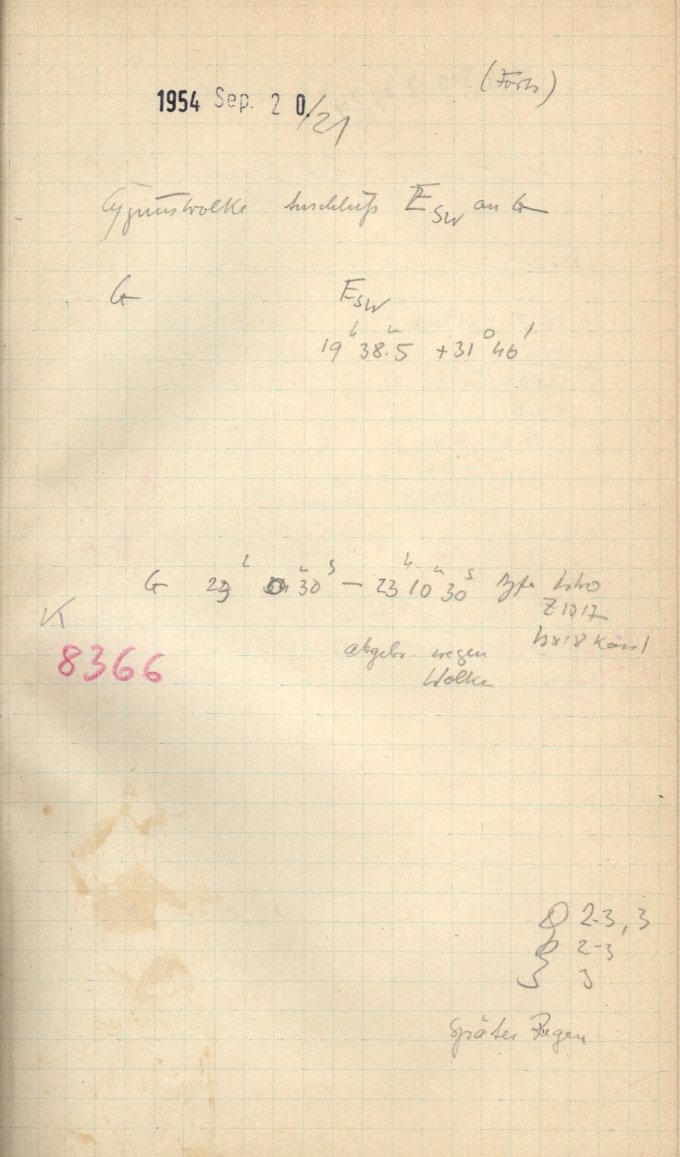 1954 Sep. 20./21
(Forts)
Cygnuswolke Anschluß E SW an G
G E SW
19h 38m.5 +31° 46'
G 23h 30s — 23h 10m 30s
K
8366
abgebr. wegen
Wolke
2-3, 3
2-3
S 3
Später Regen